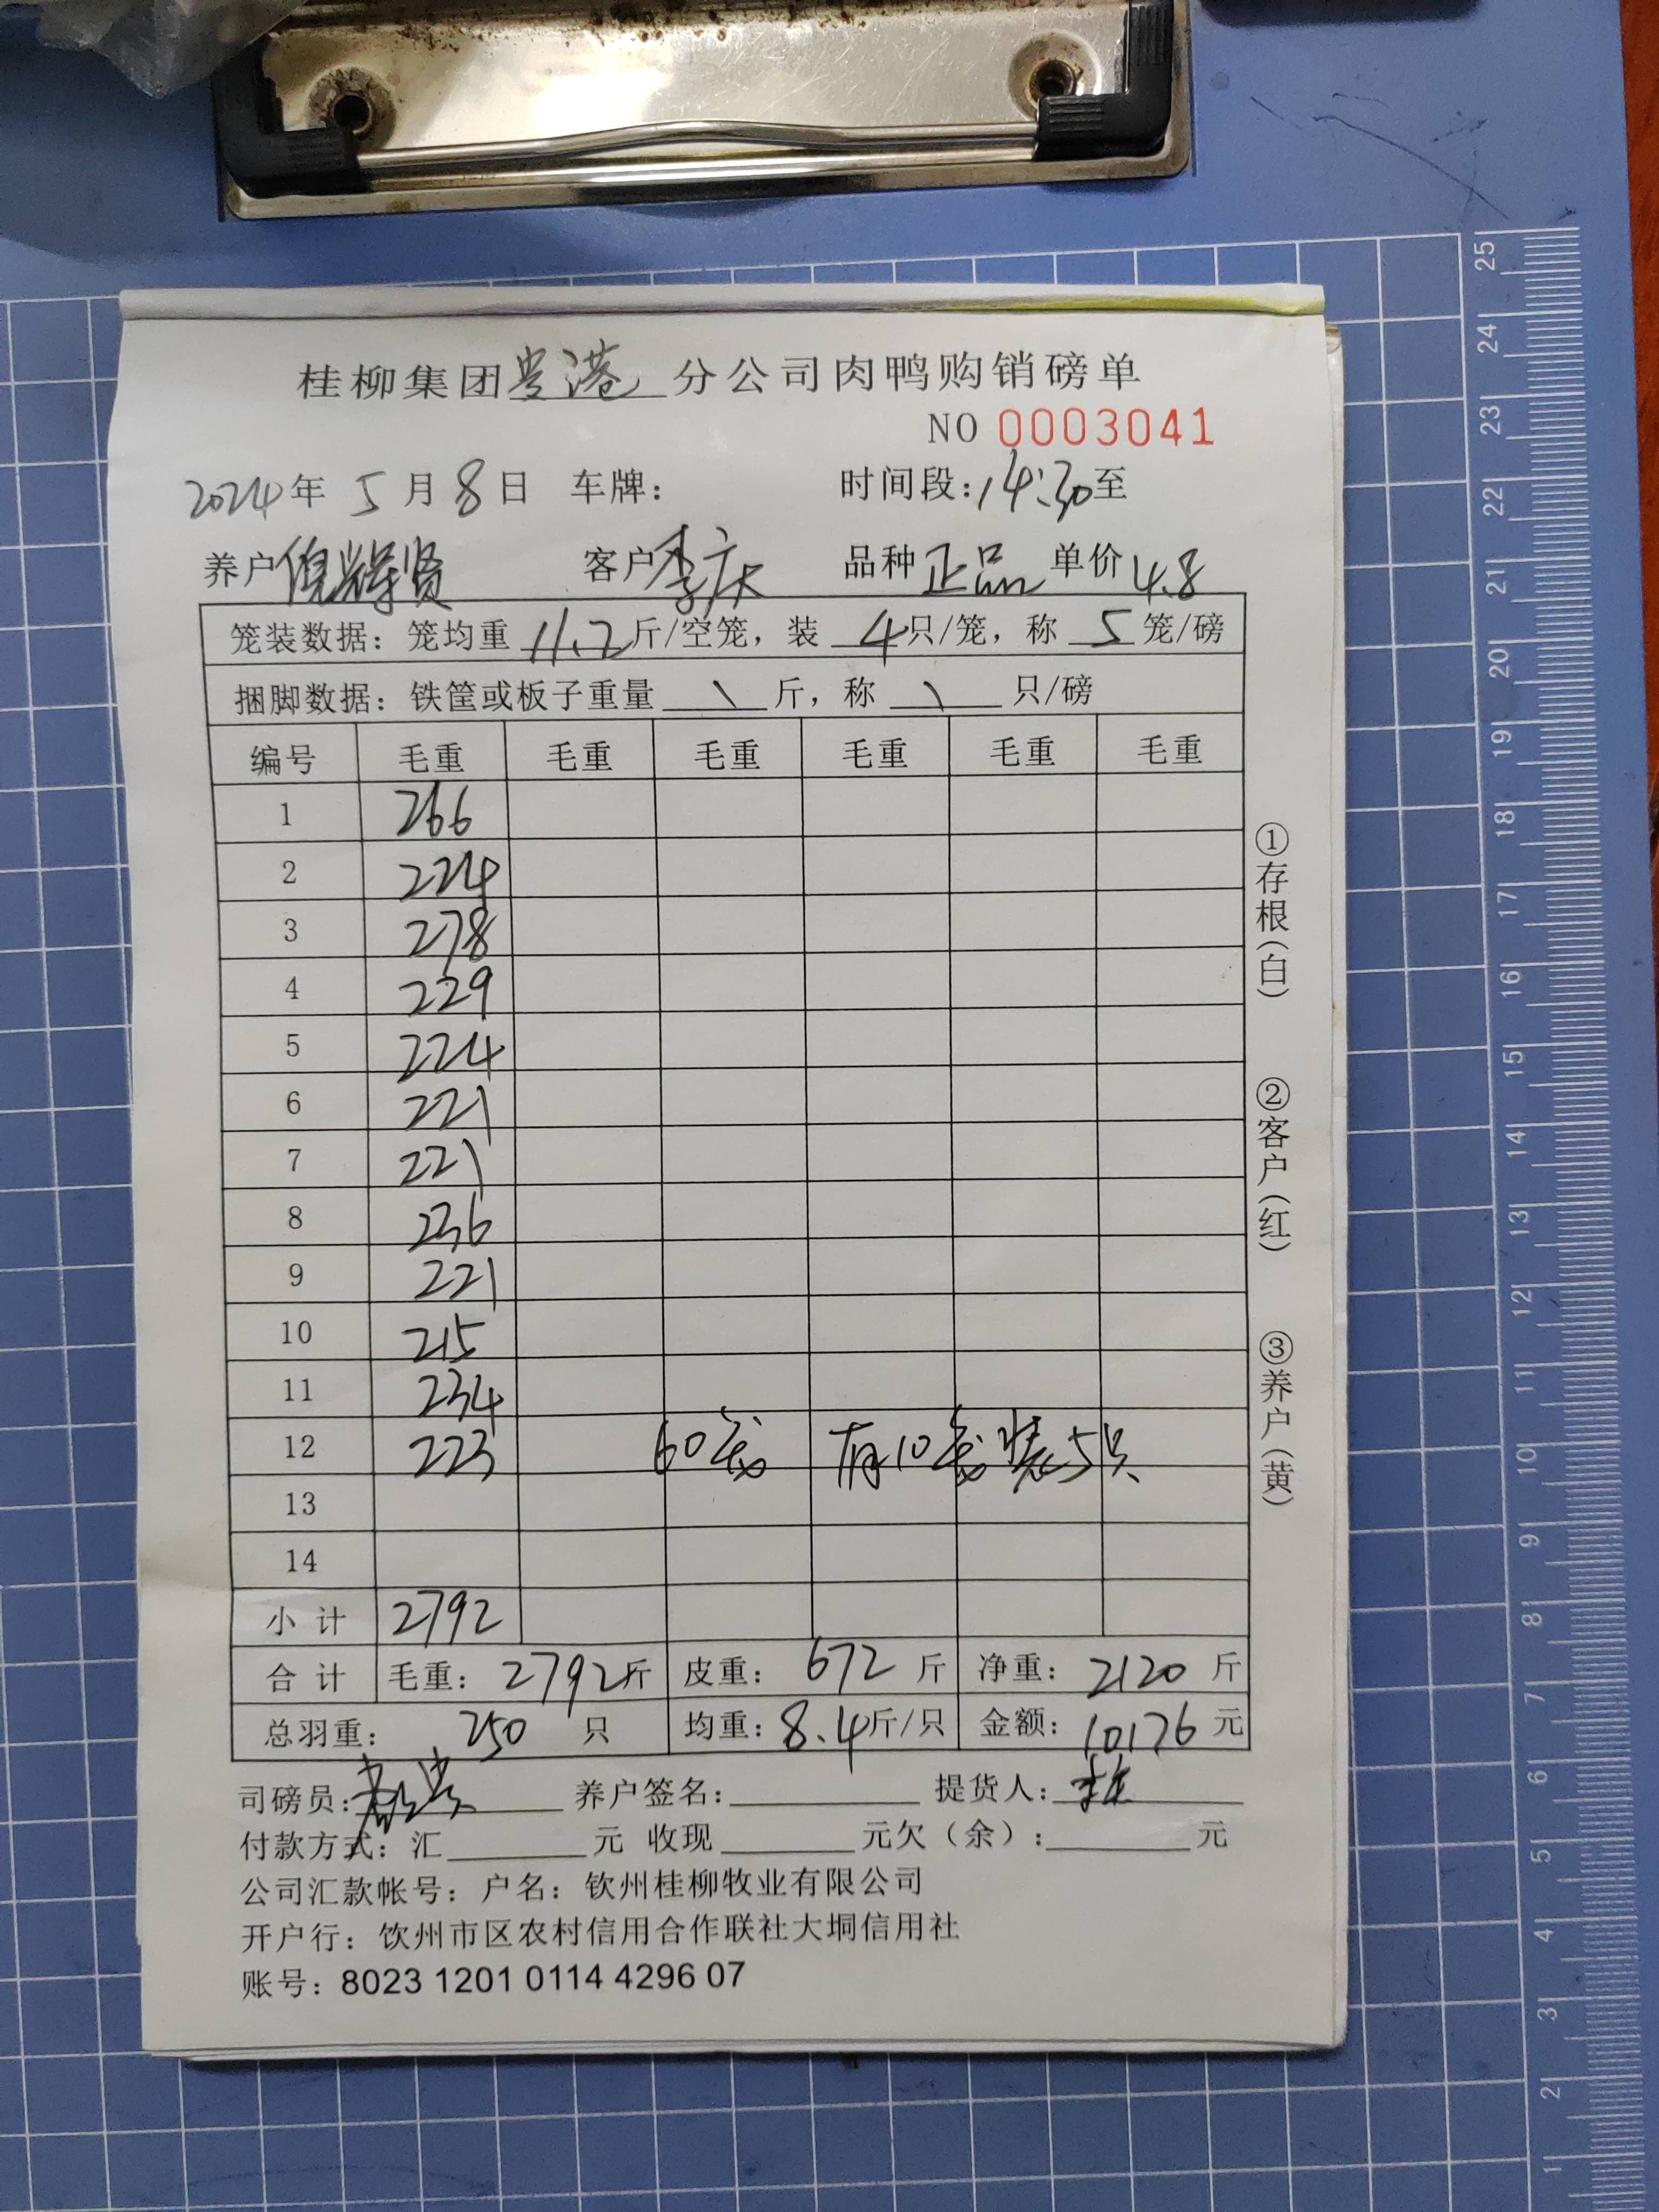 桂柳集团贵港分公司肉鸭购销磅单
NO 0003041
2024年 5月8日 车牌: 时间段:14:30至
养户倪辉贤 客户李庆 品种正品 单价4.8
笼装数据:笼均重 11.2斤/空笼,装 4只/笼,称 5笼/磅
捆脚数据:铁筐或板子重量 \ 斤,称 \ 只/磅
编号 毛重 毛重 毛重 毛重 毛重 毛重
1 266
2 224
3 278
4 229
5 224
6 221
7 221
8 236
9 221
10 215
11 234
12 223 60笼 有10笼装5只
13
14
小计 2792
合计 毛重:2792斤 皮重:672斤 净重:2120斤
总羽重:250只 均重:8.4斤/只 金额:10176元
司磅员: 养户签名: 提货人:
付款方式:汇 元 收现 元欠(余): 元
公司汇款帐号:户名:钦州桂柳牧业有限公司
开户行:饮州市区农村信用合作联社大垌信用社
账号:8023 1201 0114 4296 07
①存根(白) ②客户(红) ③养户(黄)
25
24
23
22
21
20
19
18
17
16
15
14
13
12
11
10
9
8
7
6
5
4
3
2
1